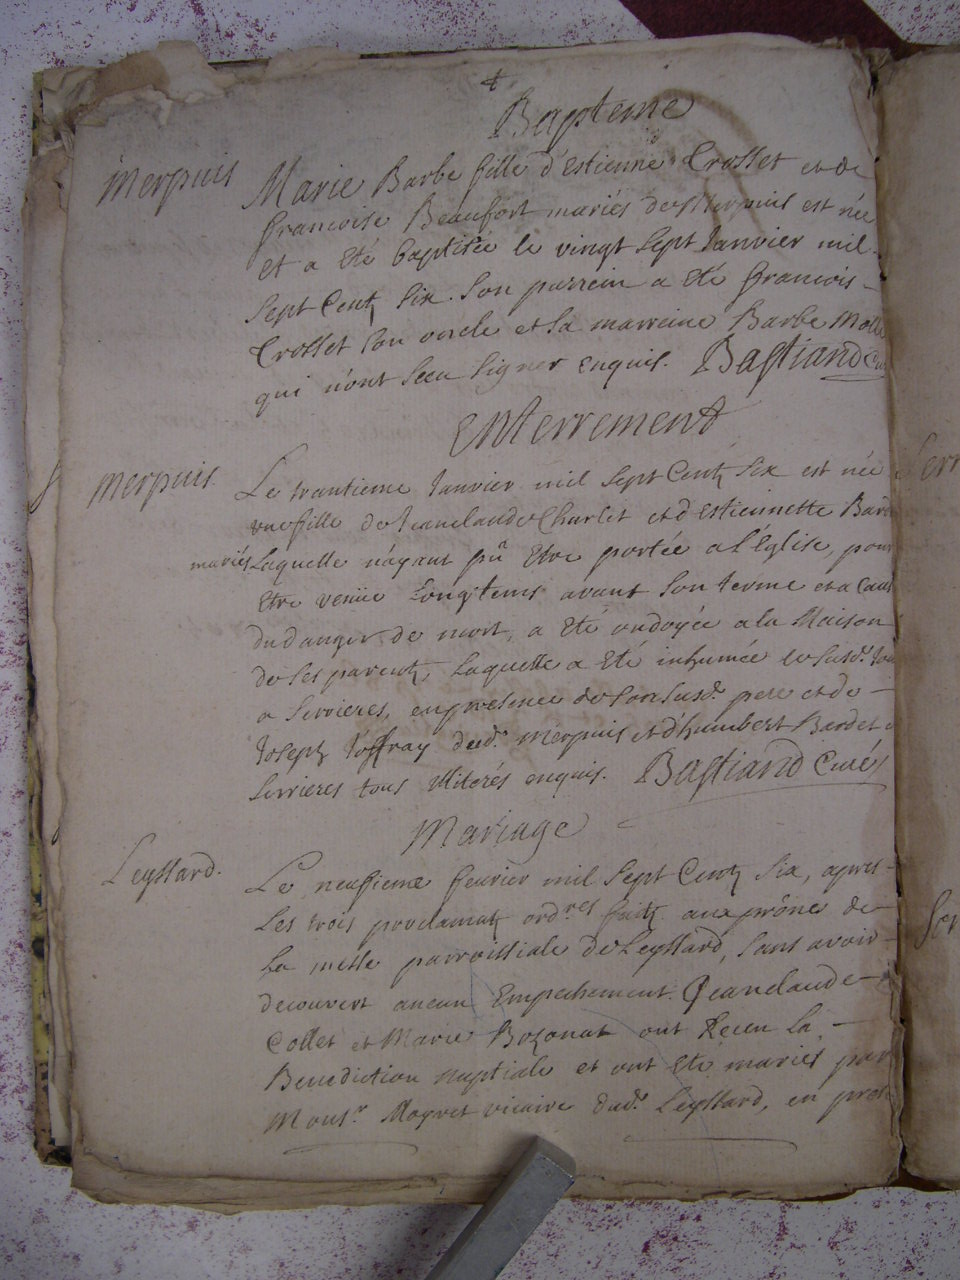 Bapteme
Merpuis
Marie Barbe fille d'Estienne Crosset et de
francoise Beaufort mariés de Merpuis est née
et a eté baptisée le vingt sept Janvier mil
sept Centz six. Son parrein a eté francois
Crosset son oncle et sa marreine Barbe
qui n'ont sceu signer enquis. Bastiand
Enterrement
Merpuis
Le trantieme Janvier mil sept Centz six est née
une fille de Jeanclaude Charlet et d'Estiennette
mariés Laquelle n'ayant pû Etre portée a l'Église, pour
Etre venüe Longtems avant son terme et a
du danger de mort, a eté ondoyée a la Maison
de ses parentz, Laquelle a eté inhumée le susd.
a Serrieres, en presence de son susd. pere et de
Joseph Joffray dud. Merpuis et d'humbert Bardet
Serrieres tous illiterés enquis. Bastiand Curé
Mariage
Leyssard.
Le neufieme fevrier mil sept Centz six, apres
les trois proclamatz ord.res faitz aux prônes de
la messe parroissiale de Leyssard, sans avoir
decouvert aucun Empechement. Jeanclaude
Collet et Marie Bozonat ont Receu la
Benediction nuptiale et ont eté mariés par
Mons.r Moyret vicaire dud. Leyssard, en